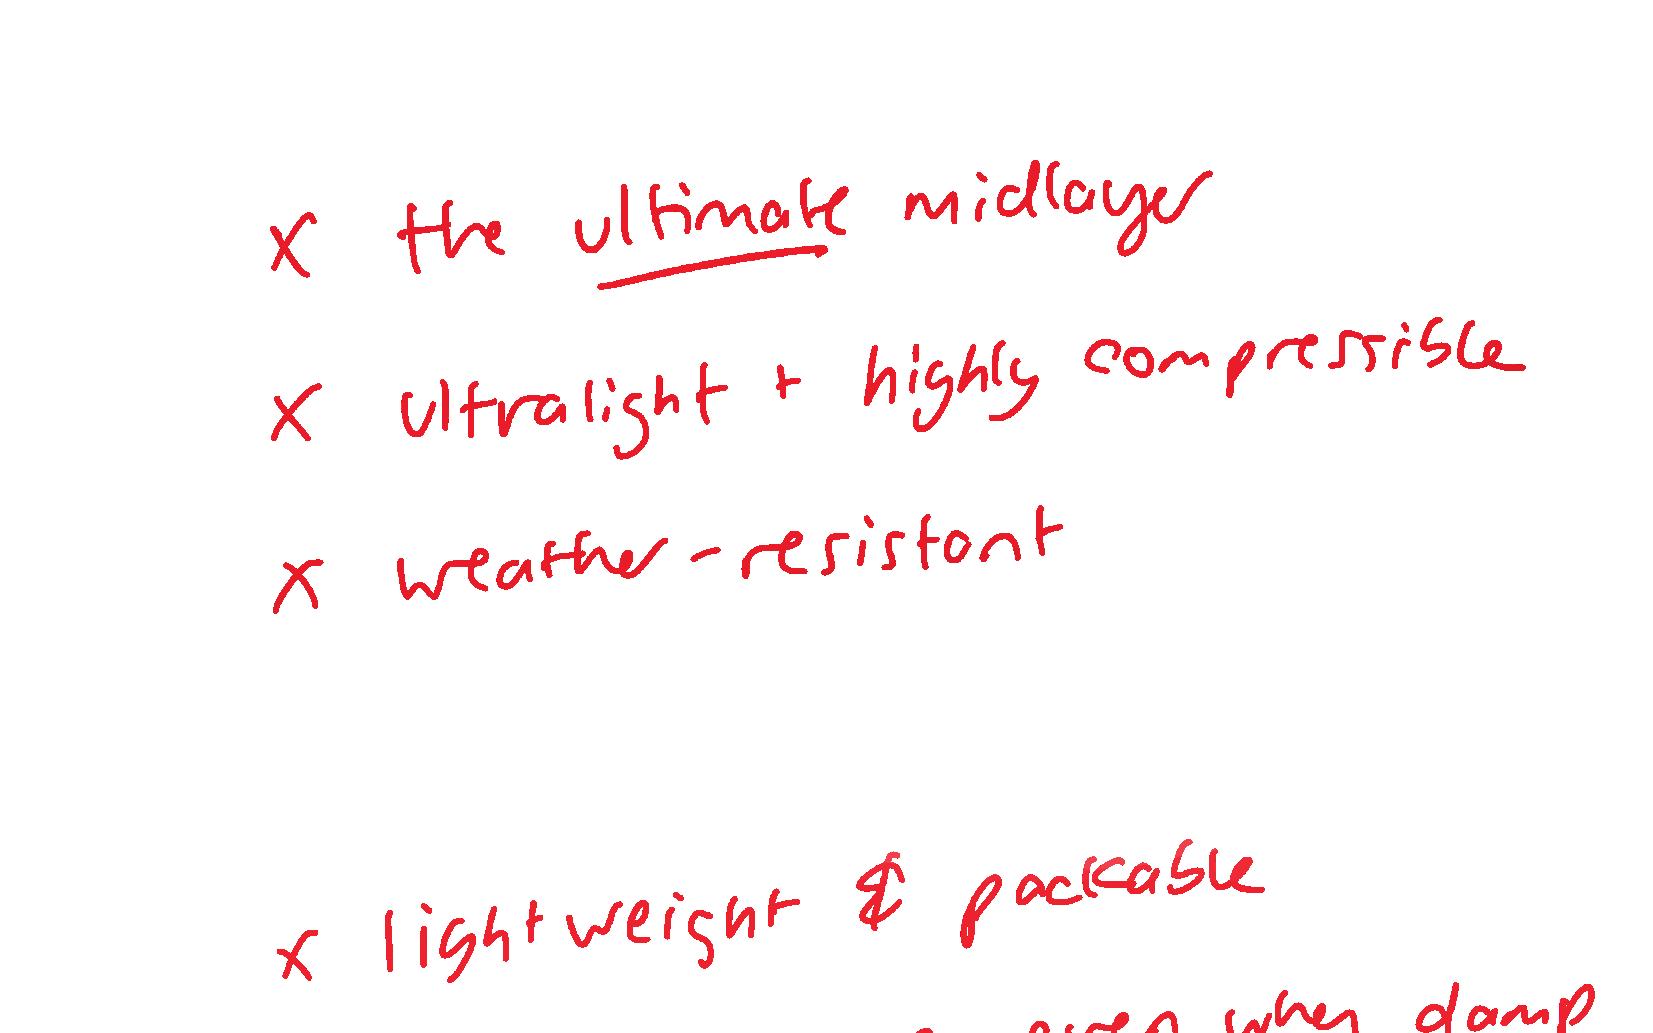 x the ultimate midlayer
x ultralight + highly compressible
x weather-resistant
x lightweight & packable
even when damp